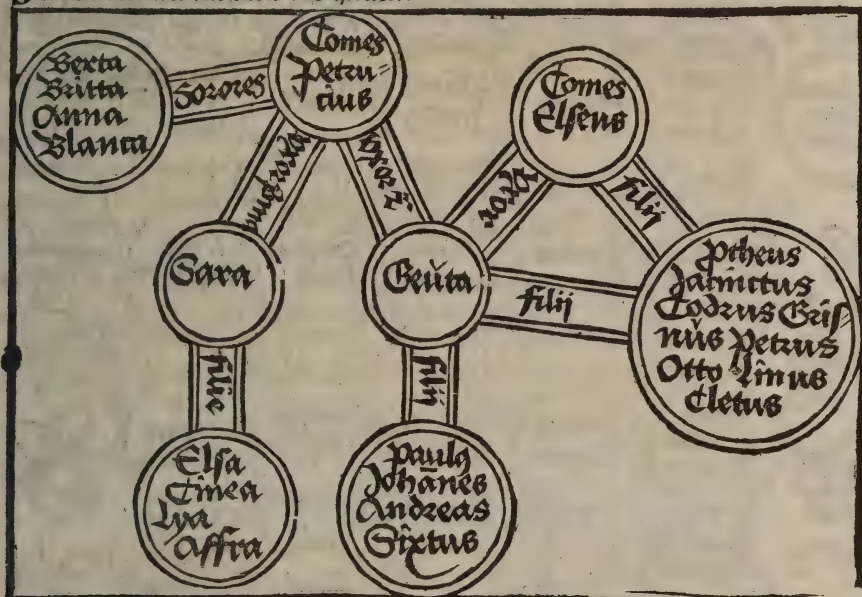 Berta
Britta
Anna
Blanca
Sorores
Comes
Petru-
cius
Comes
Elseus
uxor
filij
Sara
Geuta
filij
Ptheus
Jacinctus
Codrus Gris-
nus Petrus
Otto Linus
Cletus
filie
filij
Elsa
Cinea
Lya
Affra
Paulꝯ
Johānes
Andreas
Sixtus